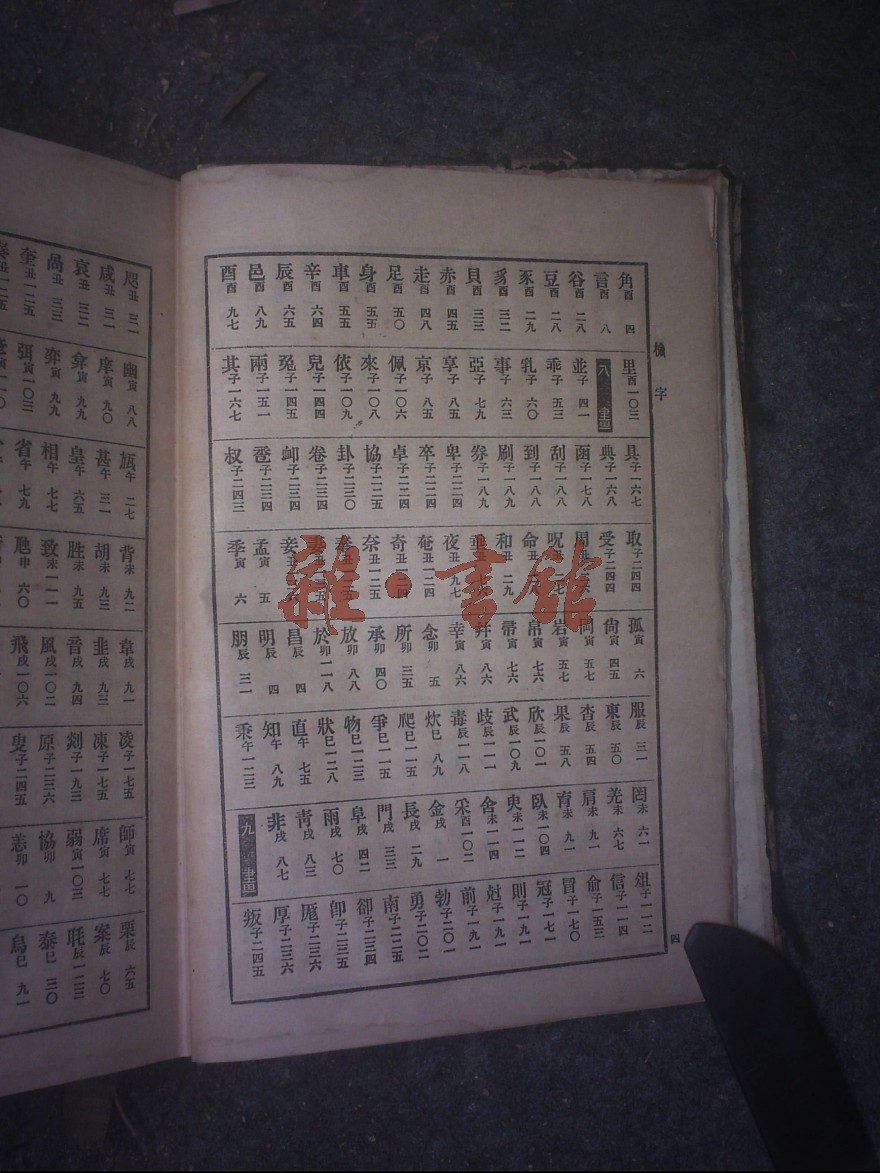 檢字
角酉四
言酉八
谷酉二八
豆酉二八
豕酉二九
豸酉三二
貝酉三三
赤酉四五
走酉四八
足酉五〇
身酉五五
車酉五五
辛酉六四
辰酉六五
邑酉八九
酉酉九七
里酉一〇三
八畫
並子四一
乖子五三
乳子六〇
事子六三
亞子七九
享子八五
京子八五
佩子一〇六
來子一〇八
依子一〇九
兒子一四四
兔子一四五
兩子一五一
其子一六七
具子一六七
典子一六八
函子一七八
刮子一八八
到子一八八
刷子一八九
券子一八九
卑子二二四
卒子二二四
卓子二二四
協子二二五
卦子二三〇
卷子二三四
卹子二三四
卺子二三四
叔子二四三
取子二四四
受子二四四
周丑
呪丑
命丑
和丑二九
垂丑
夜丑九七
奄丑一二四
奇丑
奈丑一二五
奉丑
妻丑
妾丑
孟寅五
季寅六
孤寅六
尙寅四五
岡寅五七
岩寅五七
帛寅七六
帚寅七六
幷寅八六
幸寅八六
念卯五
所卯三五
承卯四〇
放卯八八
於卯一一八
昌辰四
明辰四
朋辰三一
服辰三一
東辰五〇
杳辰五四
果辰五八
欣辰一〇一
武辰一〇九
歧辰一一一
毒辰一一八
炊巳八九
爬巳一一五
爭巳一一五
物巳一二三
狀巳一二八
直午七五
知午八九
乘午一二三
罔未六一
羌未六七
肩未九一
育未九一
臥未一〇四
臾未一一二
舍未一一四
采酉一〇二
金戌一
長戌二九
門戌三三
阜戌四二
雨戌七〇
靑戌八三
非戌八七
九畫
俎子一一二
信子一一四
俞子一五三
冒子一七〇
冠子一七一
則子一九一
剋子一九一
前子一九一
勃子二〇一
勇子二〇二
南子二二五
卻子二三四
卽子二三五
厖子二三六
厚子二三六
叛子二四五
四
咫丑三一
咸丑三一
哀丑三二
咼丑三三
奎丑一二五
幽寅八八
庠寅九〇
弇寅九九
弈寅九九
弭寅一〇三
瓬午二七
甚午三一
皇午六五
相午七七
省午七九
背未九二
胡未九三
胜未九五
致未一一一
虺申六〇
韋戌九一
韭戌九三
音戌九四
風戌一〇二
飛戌一〇六
凌子一七五
凍子一七五
剡子一九三
原子二三六
叟子二四五
師寅七七
席寅七七
弱寅一〇三
協卯九
恙卯一〇
栗辰六五
案辰七〇
眊辰一二三
泰巳三〇
烏巳九一
雜·書館